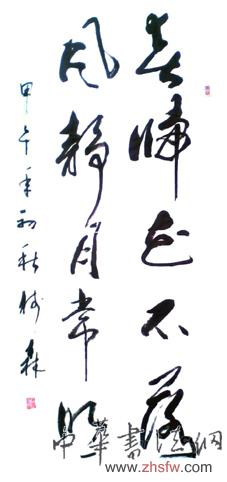 春归花不落
风静月常明
甲午年初秋树森
中华书法网
www.zhsfw.com